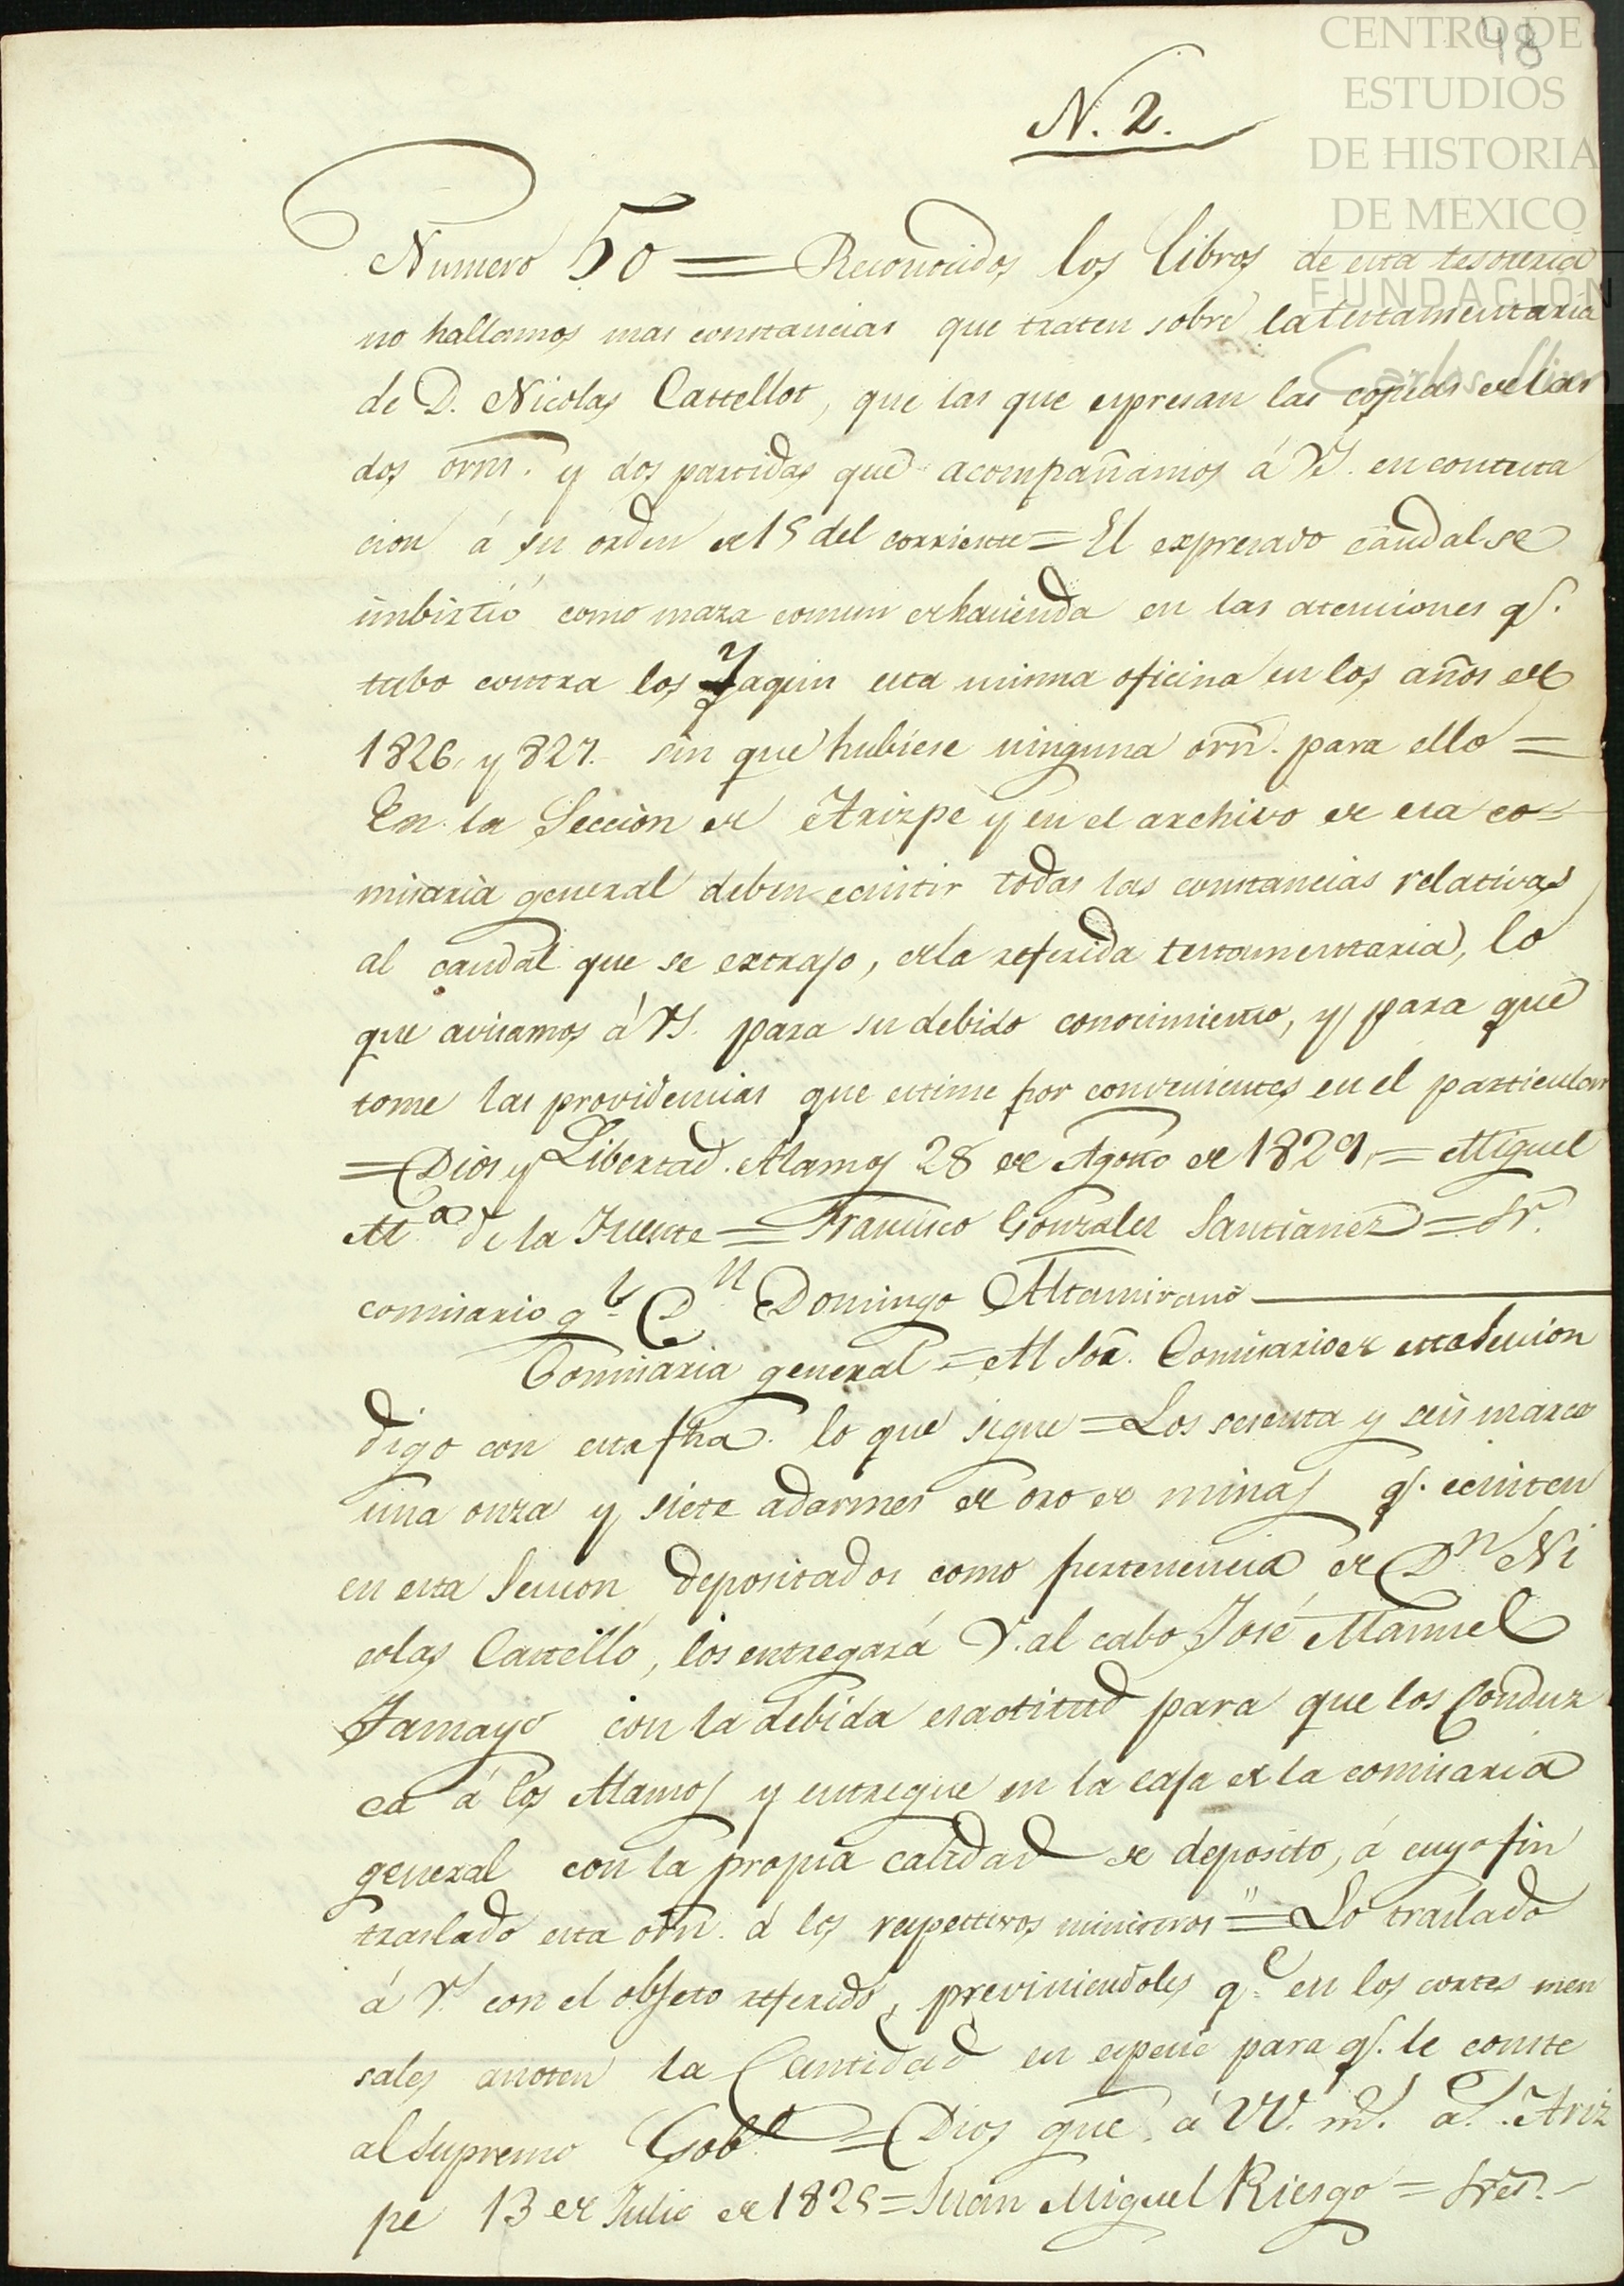 48
CENTRO DE
ESTUDIOS
DE HISTORIA
DE MEXICO
FUNDACIÓN
Carlos Slim
N. 2.
Numero 50 = Reconocidos los libros de esta tesoreria
no hallamos mas constancias que traten sobre la testamentaria
de D. Nicolas Castellot, que las que espresan las copias de las
dos orns. y dos partidas que acompañamos á VS. en contesta
cion á su orden de 15 del corriente = El expresado caudal se
imbirtió como maza comun de hacienda en las atenciones q.
tubo contra los Yaquis esta misma oficina en los años de
1826, y 827. sin que hubiese ninguna orn. para ello =
En la Seccion de Arizpe y en el archivo de esa co=
misaria general deben ecsistir todas las constancias relativas
al caudal que se extrajo, de la referida testamentaria, lo
que avisamos á VS. para su debido conocimiento, y para que
tome las providencias que estime por convenientes en el particular
= Dios y Libertad. Alamos 28 de Agosto de 1829, = Miguel
Ma. de la Fuente = Francisco Gonzales Santianez = Sr.
comisario gl. Dn Domingo Altamirano
Comisaria general = Al Sor. Comisario de esta Seccion
digo con esta fha. lo que sigue = Los sesenta y seis marcos
una onza y siete adarmes de oro de minas q. ecsisten
en esta Seccion depositados como pertenencia de Dn Ni
colas Castelló, los entregará V. al cabo José Manuel
Tamayo con la debida esactitud para que los Conduz
ca á los Alamos y entregue en la caja de la comisaria
general con la propia calidad de deposito, á cuyo fin
traslado esta orn. á los respectivos ministros" = Lo traslado
á V. con el objeto referido, previniendoles qe. en los cortes men
sales anoten la Cantidad en especie para q. le conste
al Supremo Gobo. = Dios gue. á VV. ms. as. Ariz
pe 13 de Julio de 1825 = Juan Miguel Riesgo = Sres.